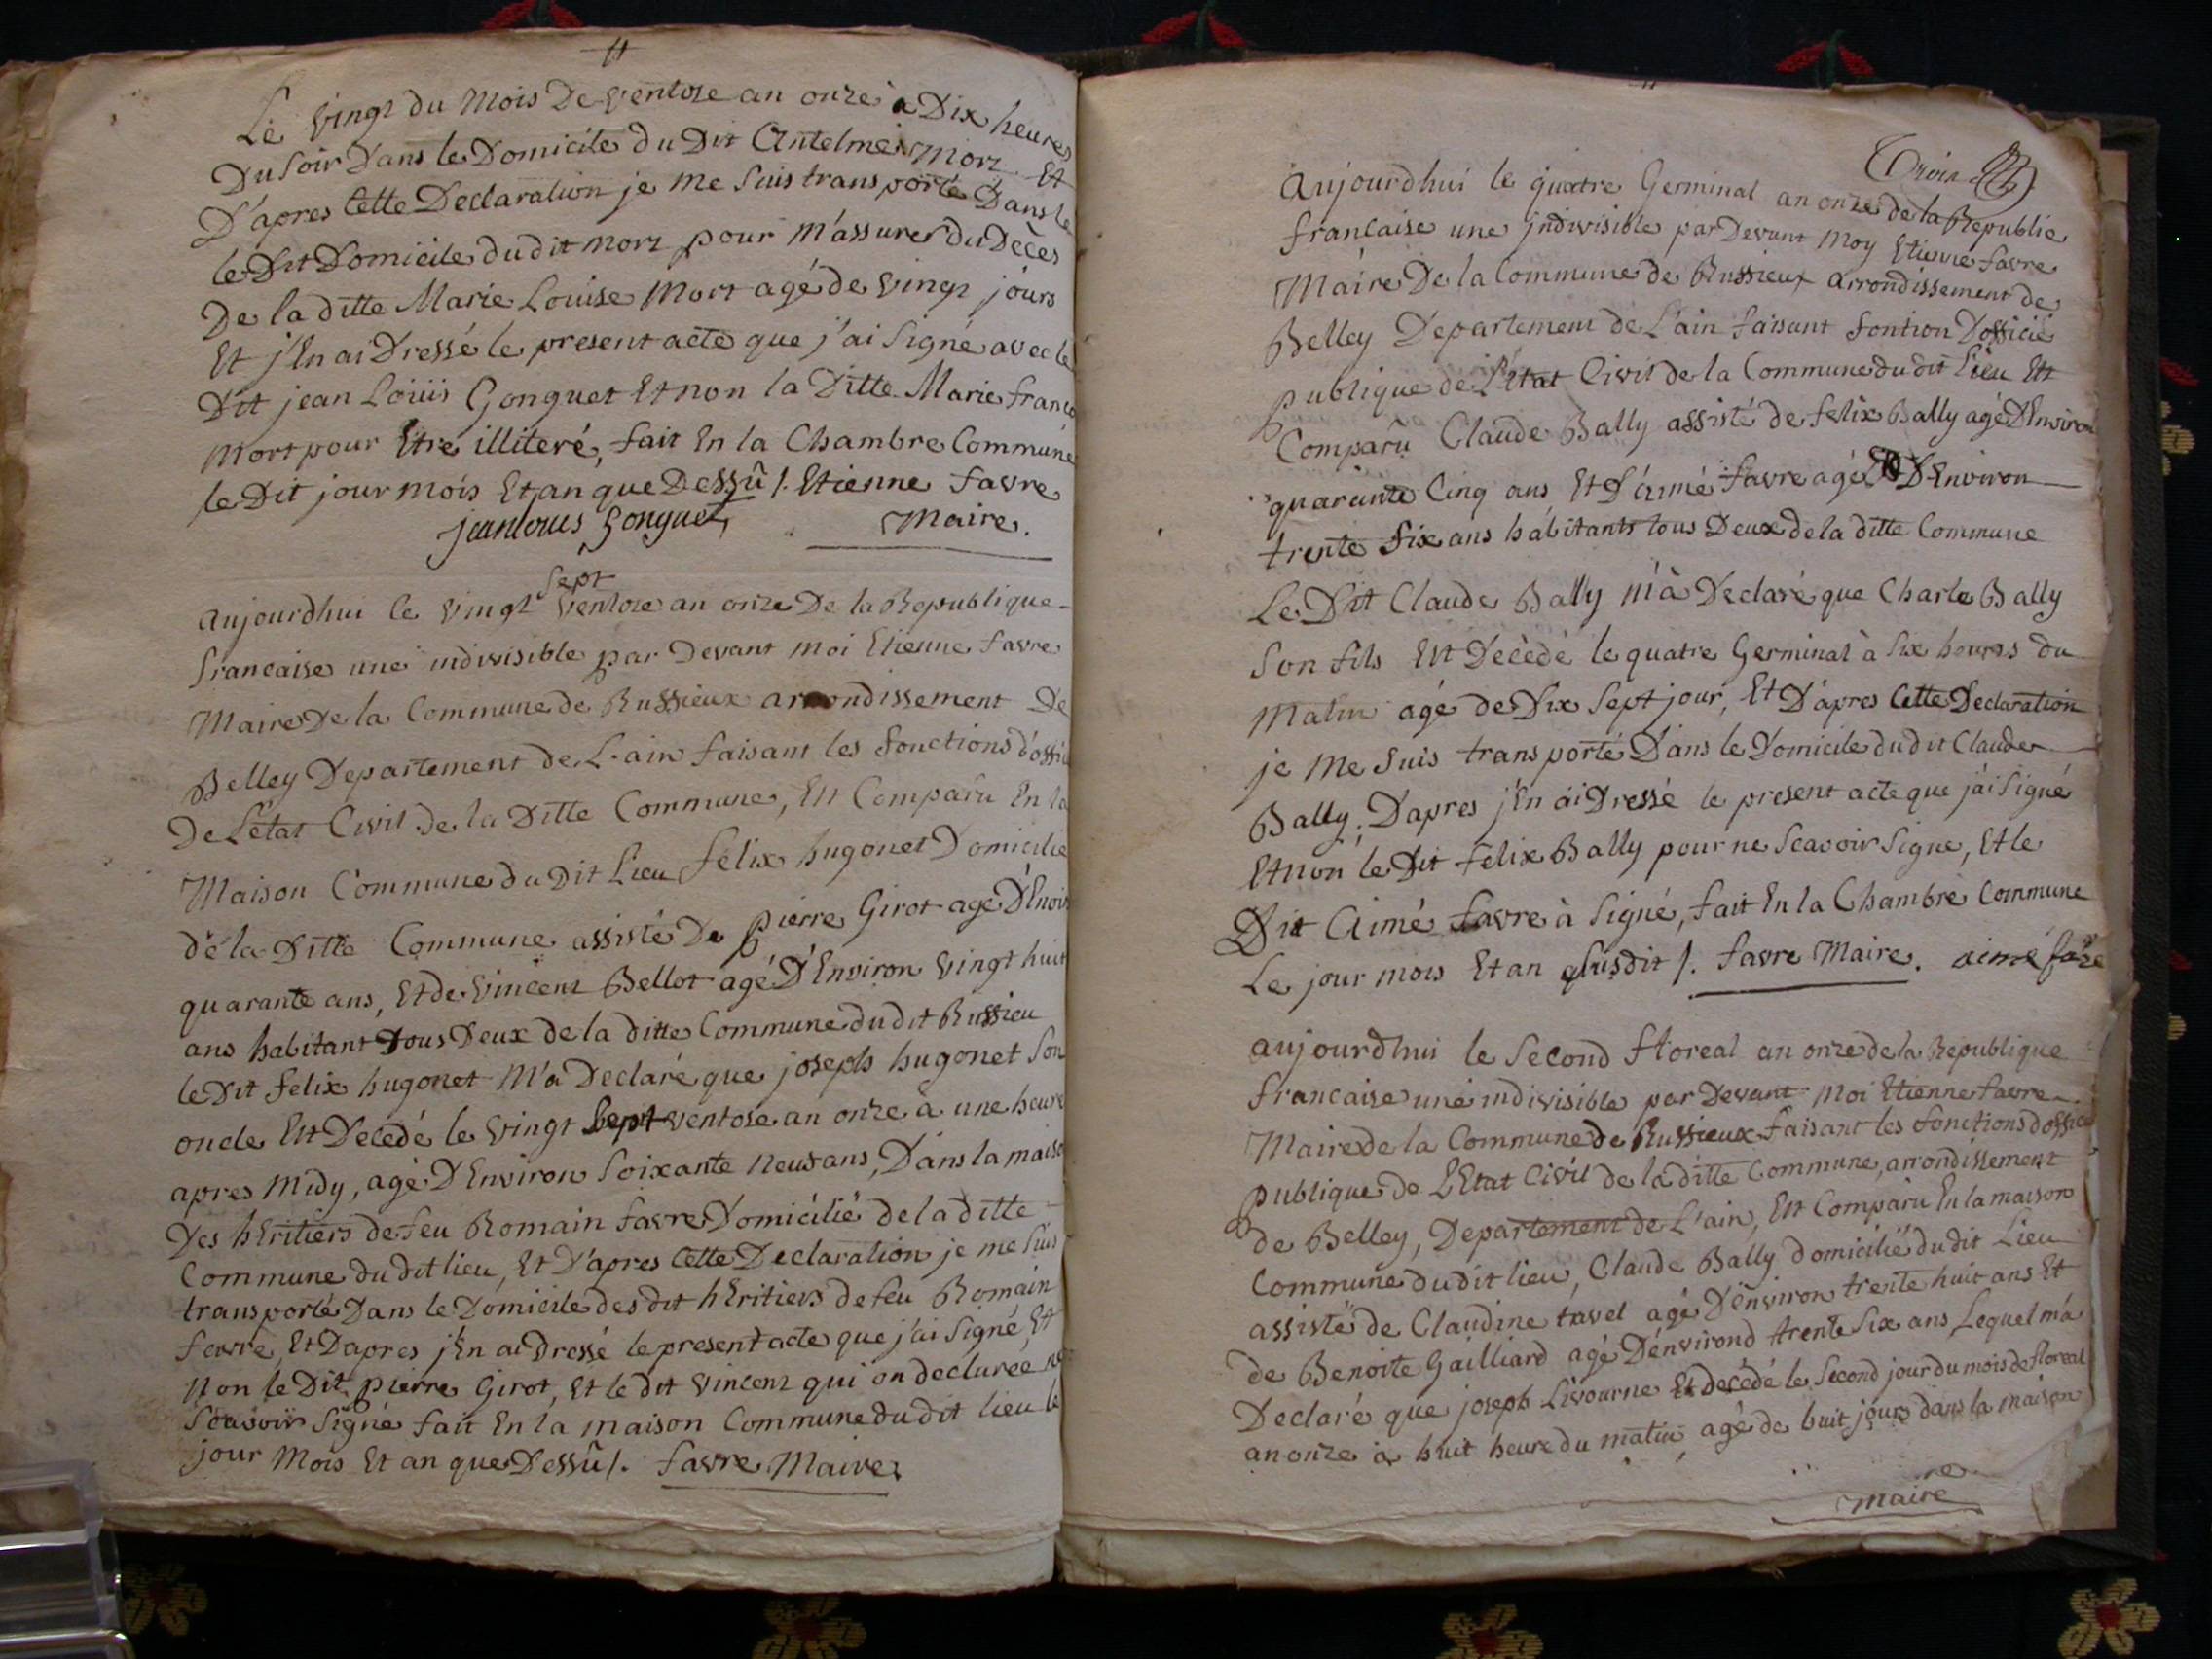 Le vingt du Mois De ventose an onze à Dix heures
Du Soir Dans le Domicile du Dit Antelme Mort. Et
D'apres Cette Declaration je me Suis transporté Dans le
le Dit Domicile du dit mort pour m'assurer du Décès
De la ditte Marie Louise Mort agé de vingt jours
Et j'En ai Dressé le present acte que j'ai Signé avec le
Dit jean Loüis Gonguet Et non la Ditte Marie franc
Mort pour Etre illiteré, fait En la Chambre Commune
le Dit jour mois Et an que Dessû /. Etienne favre
jeanlouis Gonguet Maire.
Sept
aujourdhui le vingt ventose an onze De la Republique
francaise une indivisible par Devant moi Etienne favre
Maire De la Commune de Russieux arrondissement De
Belley Departement de L'ain faisant les fonctions d'offi
De L'état Civil de la Ditte Commune, Est Comparu En la
Maison Commune du Dit Lieu felix hugonet Domicilie
de la Ditte Commune assisté De pierre Girot agé D'Envi
quarante ans, Et de vincent Bellot agé D'Environ vingt huit
ans habitant tous Deux de la ditte Commune du dit Russieu
le Dit felix hugonet M'a Declaré que joseph hugonet Son
oncle Est Decedé le vingt Sept ventose an onze à une heure
apres Midy, agé D'Environ Soixante neuf ans, Dans la maiso
Des hEritiers de feu Romain favre Domicilié de la ditte
Commune du dit lieu, Et D'apres Cette Declaration je me Suis
transporté Dans le Domicile des dit hEritiers de feu Romain
favre, Et D'apres j'En ai Dressé le present acte que j'ai Signé, Et
Non le Dit pierre Girot, Et le dit vincent qui on declaree ne
Scavoir Signé fait En la maison Commune du dit lieu le
jour Mois Et an que Dessû /. favre Maire
aujourdhui le quatre Germinal an onze de la Republie
francaise une jndivisible par Devant Moy Etienne favre
Maire De la Commune de Russieux arrondissement de
Belley Departement de L'ain faisant fontion D'officié
publique de L'état Civil de la Commune du dit Lieu Est
Comparu Claude Bally assisté de felix Bally agé D'Environ
quarante Cinq ans Et D'aimé favre agé D'Environ
trente Six ans habitants tous Deux de la ditte Commune
Le Dit Claude Bally M'à Declaré que Charle Bally
Son fils Est Decèdè le quatre Germinal à Six heures du
Matin agé de Dix Sept jour, Et D'apres Cette Declaration
je Me Suis transporté Dans le Domicile du dit Claude
Bally. D'apres j'En ai Dressé le present acte que j'ai Signé
Et non le Dit felix Bally pour ne Scavoir Signe, Et le
Dit Aimé favre à Signé, fait En la Chambre Commune
Le jour mois Et an dit /. favre Maire. aimé favre
aujourdhui le Second floreal an onze de la Republique
francaise une indivisible par Devant Moi Etienne favre
Maire de la Commune de Russieux faisant les fonctions d'offic
publique de L'Etat Civil de la ditte Commune, arrondissement
de Belley, Departement de L'ain, Est Comparu En la maison
Commune du dit lieu, Claude Bally domicilié du dit Lieu
assisté de Claudine tavel agé D'environ trente huit ans Et
de Benoite Gailliard agé D'environd trente Six ans Lequel m'a
Declaré que joseph Livourne Et decédé le Second jour du mois de floreal
an onze à huit heure du matin, agé de huit jours dans la maison
Maire